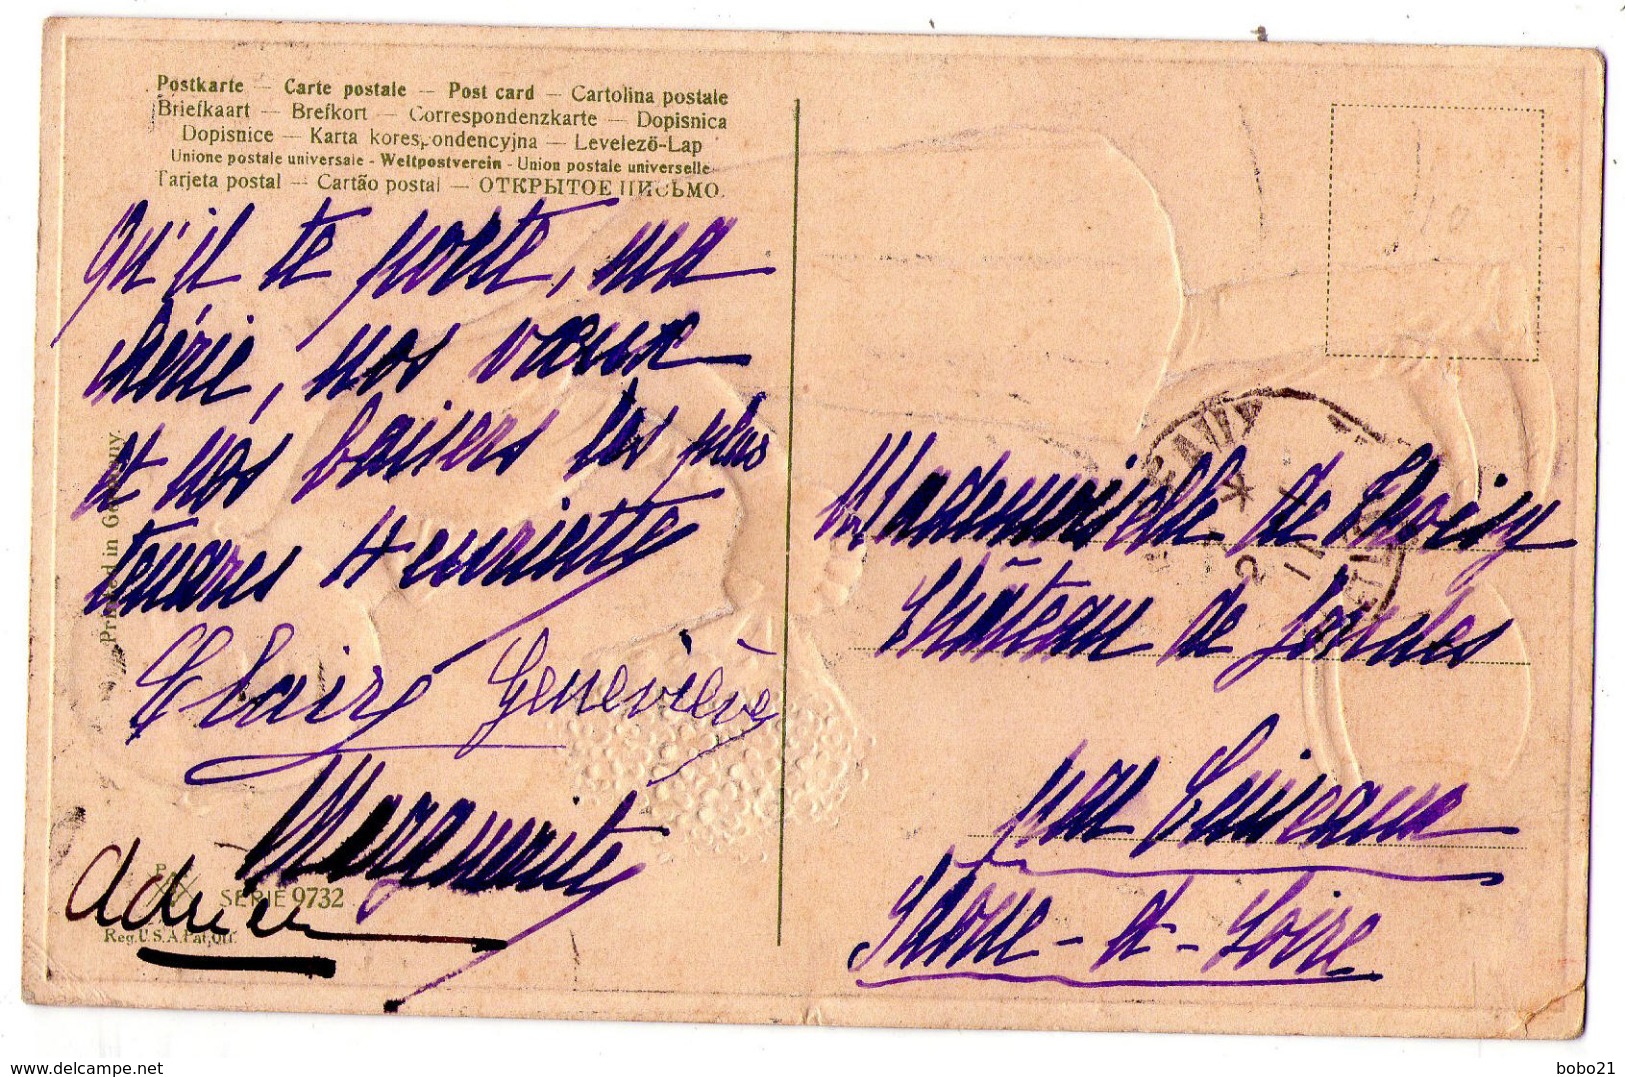 Postkarte — Carte postale — Post card — Cartolina postale
Briefkaart — Brefkort — Correspondenzkarte — Dopisnica
Dopisnice — Karta korespondencyjna — Levelező-Lap
Unione postale universale - Weltpostverein - Union postale universelle
Tarjeta postal — Cartão postal — ОТКРЫТОЕ ПИСЬМО.
Qu'il te porte, ma
chérie, nos vœux
et nos baisers les plus
tendres Henriette
Claire Geneviève
Marguerite
Adrien
Printed in Germany.
SERIE 9732
Reg. U.S.A. Pat. Off.
Mademoiselle de Choisy
Château de
par Cuiseaux
Saône-et-Loire
CUISEAUX
delcampe.net
bobo21